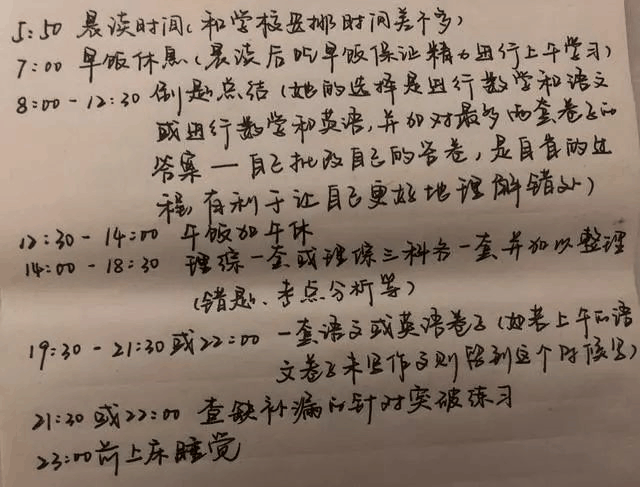 5:50 晨读时间(和学校安排时间差不多)
7:00 早饭休息(晨读后吃早饭保证精力进行上午学习)
8:00-12:30 刷题总结(她的选择是进行数学和语文
或进行数学和英语,并加对最多两套卷子的
答案—自己批改自己的答卷,是自省的过
程,有利于让自己更好地理解错处)
12:30-14:00 午饭加午休
14:00-18:30 理综一套或理综三科各一套并加以整理
(错题、考点分析等)
19:30-21:30或22:00 一套语文或英语卷子(如果上午的语
文卷子未写作文则留到这个时候写)
21:30或22:00 查缺补漏的针对突破练习
23:00前上床睡觉